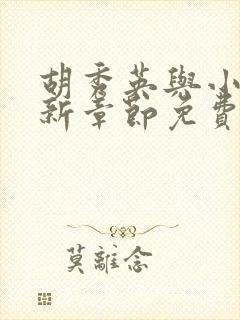 胡秀英與小
新章節免費
莫離念